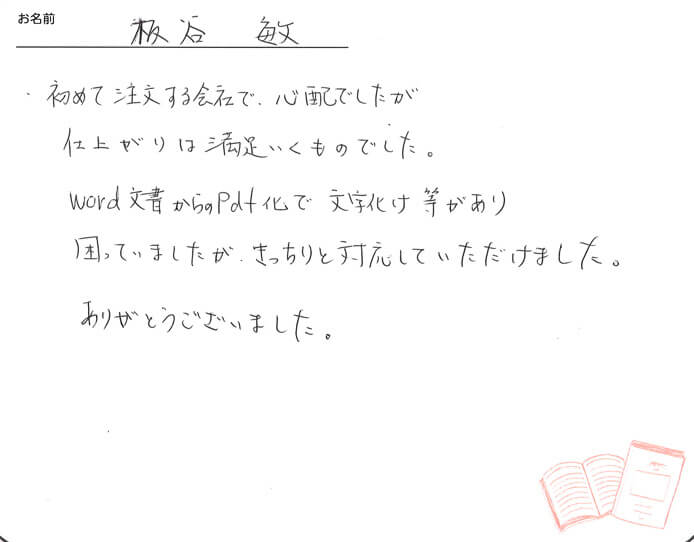 お名前 板谷 敏文
・初めて注文する会社で、心配でしたが
仕上がりは満足いくものでした。
word文書からのPdf化で文字化け等があり
困っていましたが、きっちりと対応していただけました。
ありがとうございました。